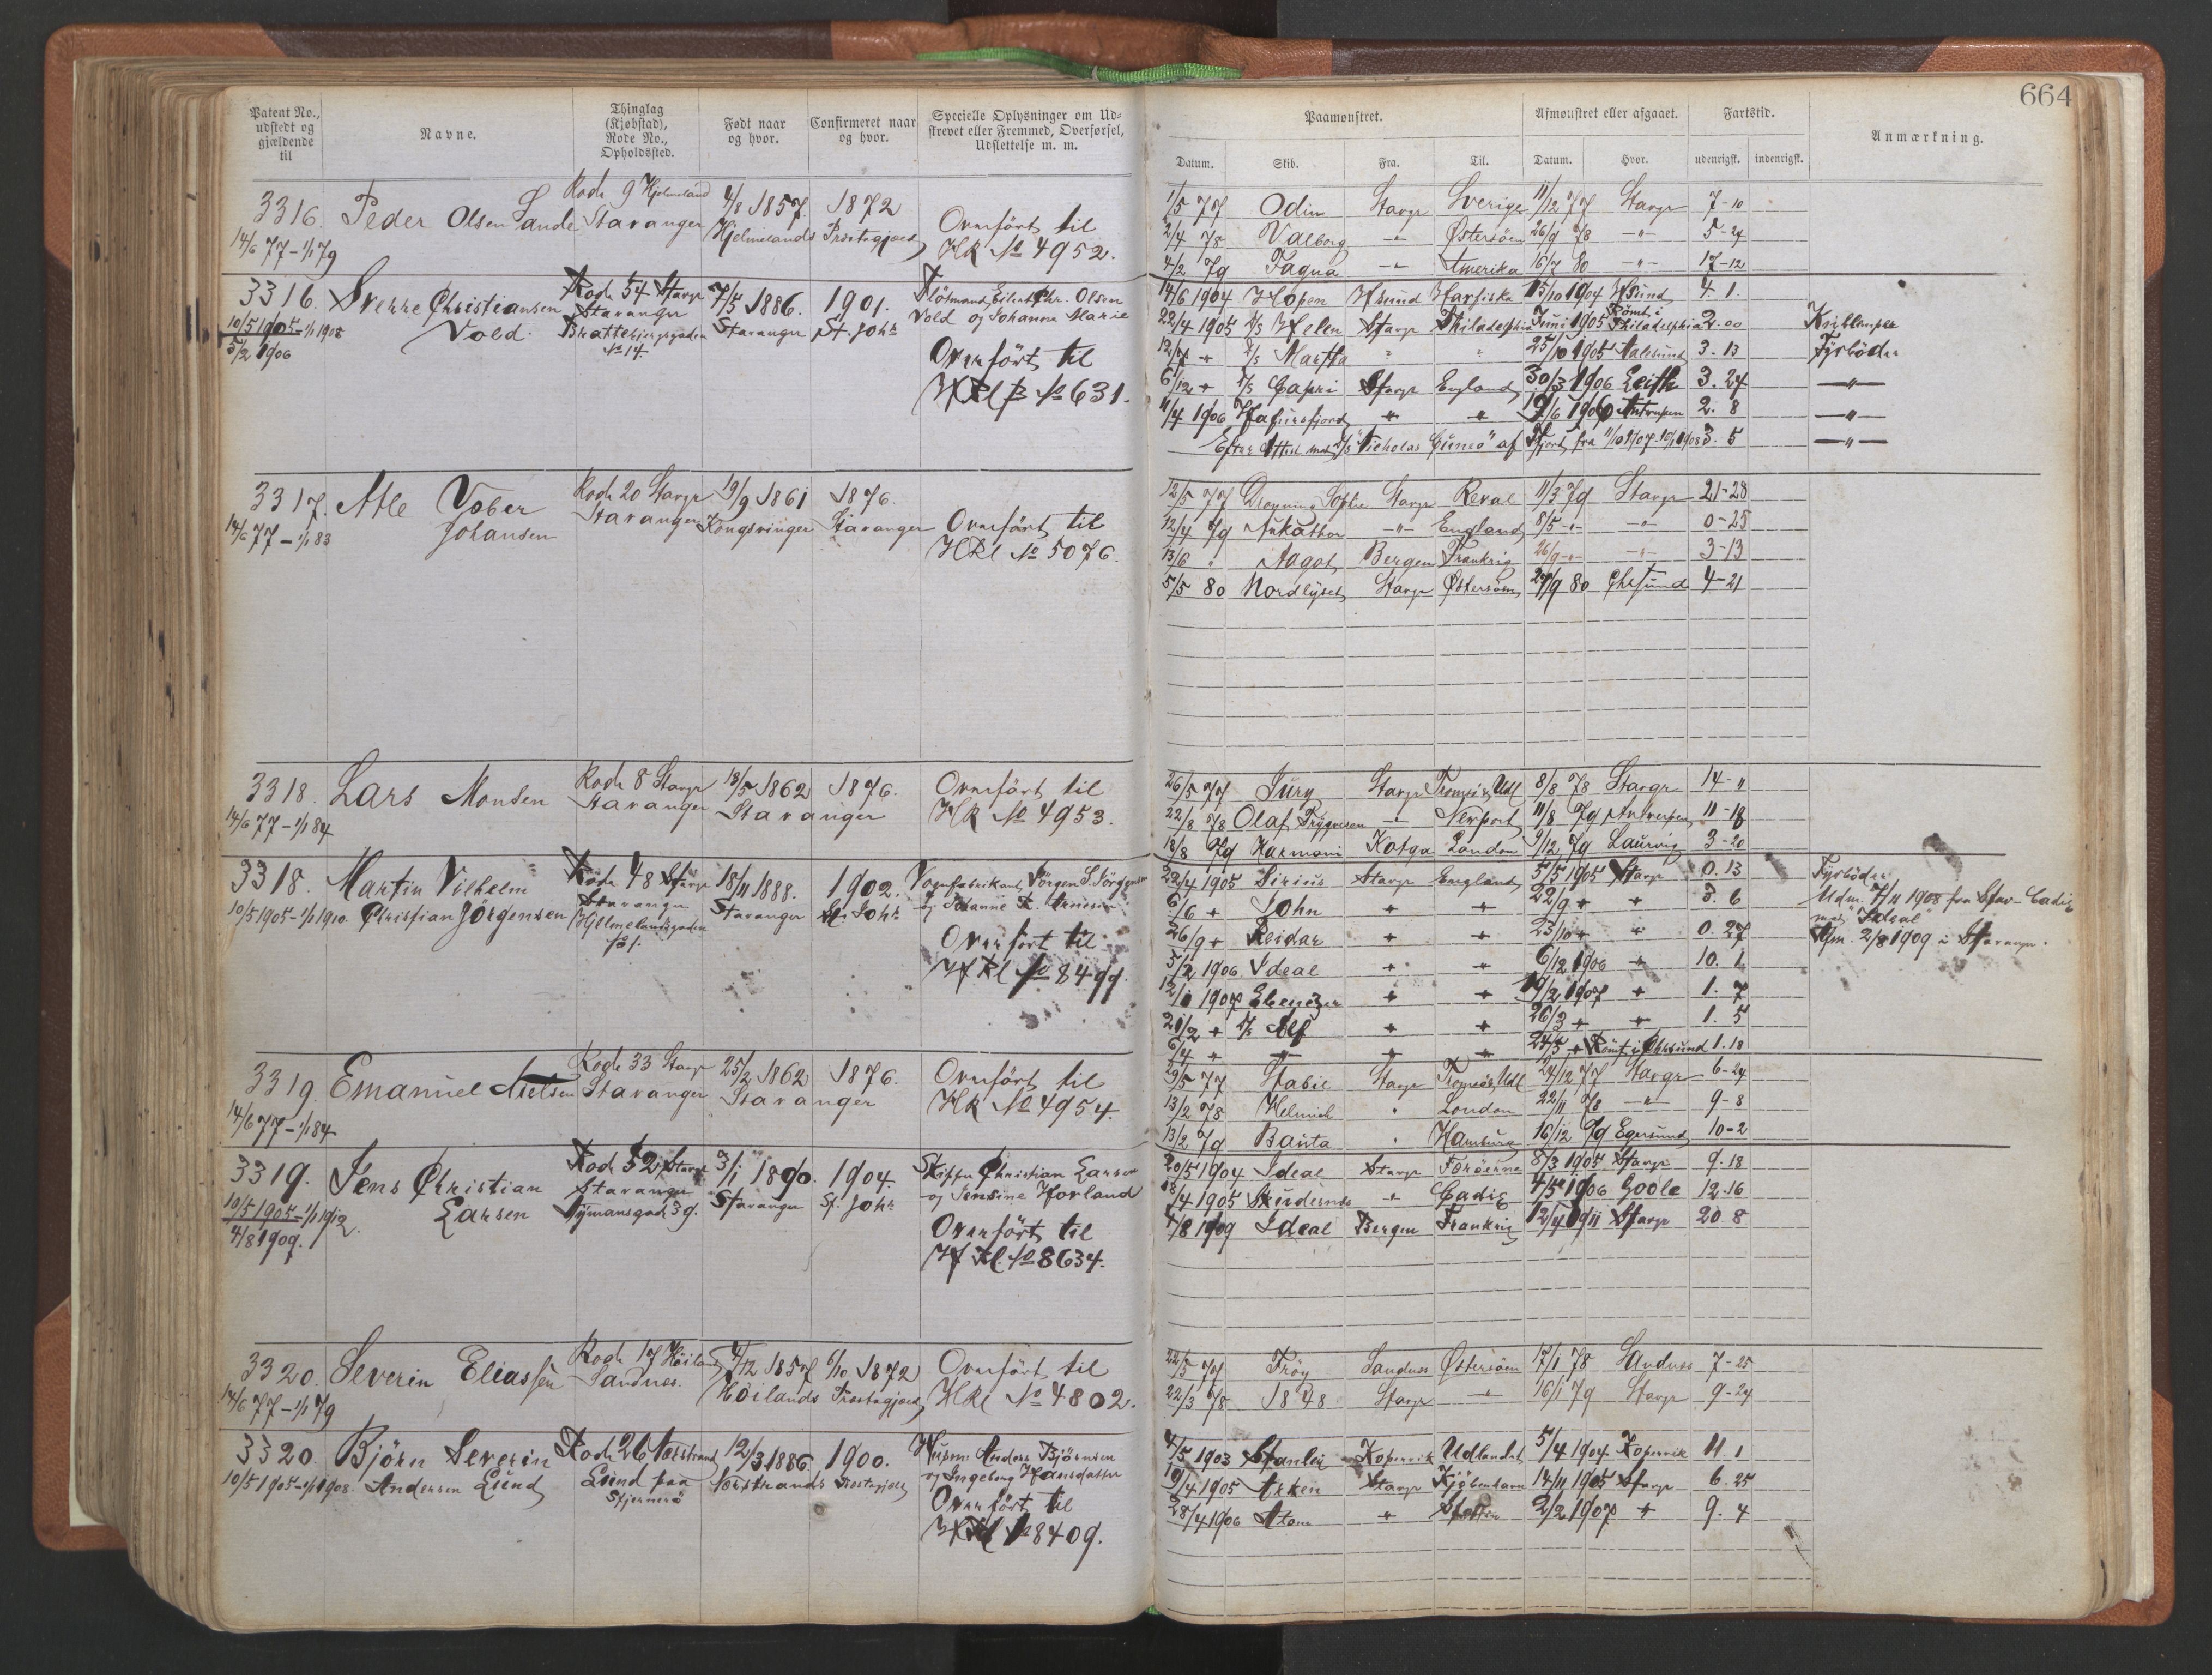 664
Patent No., udstedt og gjældende til
Navne.
Thinglag (Kjøbstad), Rode No., Opholdssted.
Født naar og hvor.
Confirmeret naar og hvor.
Specielle Oplysninger om Udstrevet eller Fremmed, Overførsel, Udslettelse m. m.
Paamønstret.
Afmønstret eller afgaaet.
Fartstid.
Anmærkning.
Datum. Skib. Fra. Til. Datum. Hvor. udenrigsk. indenrigsk.
3316. Peder Olsen Sande Rode 9 Hjelmeland 4/8 1857 1872 Overført til
14/6 77 - 1/1 79 Stavanger Hjelmelands Præstegjæld HR No 4952.
1/5 77 Odin Stavgr Sverige 11/12 77 Stavgr 7-10
2/4 78 Valborg -"- Østersøen 26/9 78 -"- 5-24
4/2 79 Fagna -"- Amerika 16/7 80 -"- 17-12
3316. Sverre Christiansen Vold. Rode 54 Stavgr 7/5 1886. 1901.
10/5 1905 - 1/1 1908 Stavanger Stavanger St. Joh:
5/2 1906 No 14.
Vold og Johanne Marie
Overført til
HRl B No 631.
14/6 1904 Hopen 15/10 1904 4. 1.
22/4 1905 D/S Helen Stavgr Philadelphia Juni 1905 Rømt i Philadelphia 2.00
D/S Martha " " 25/10 1905 Aalesund 3. 13 Fyrbøder
6/12 + D/S Capri Stavgr England 30/3 1906 Leith 3. 24 -"-
11/4 1906 Hafursfjord + + 19/6 1906 Antwrpen 2. 8 -"-
Efter Attest med D/S "Nicholas Cuneo" af Fjort. fra 11/10 1907 - 10/1 1908 3. 5 -"-
3317. Atle Vober Johansen Rode 20 Stavgr 19/9 1861 1876.
14/6 77 - 1/1 83 Stavanger Kongsvinger Stavanger Overført til
HRl No 5076.
12/5 77 Dronning Sophie Stavgr Reval 11/3 79 Stavgr 21-28
12/4 79 -"- England 8/5 -"- -"- 0-25
13/6 " Aagot Bergen Frankrig 26/9 -"- -"- 3-13
5/5 80 Nordlyset Stavgr Østersøen 29/9 80 Chrsund 4-21
3318. Lars Monsen Rode 8 Stavgr 13/5 1862 1876. Overført til
14/6 77 - 1/1 84 Stavanger Stavanger HR No 4953.
26/5 77 Jury Stavgr Tromsø & Udl 8/8 78 Stavgr 14-"
22/8 78 Olaf Trygvesen -"- Newport 11/8 79 Antverpen 11-18
18/8 79 Harmoni Kotga London 9/12 79 Laurvig 3-20
3318. Martin Vilhelm Christian Jörgensen Rode 48 Stavgr 18/11 1888. 1902. Vognfabrikant Jörgen S. Jörgensen
10/5 1905 - 1/1 1910. Stavanger Hjelmelandsgaden No 1. Stavanger St. Joh:
Overført til
HRl No 8499
22/4 1905 Sirius Stavgr England 5/5 1905 Stavgr 0. 13 Fyrbøder
6/6 + John + + 22/9 + + 3. 6 Udm. 7/11 1908 fra Stav-Cadiz
26/9 + Reidar + + 23/10 + + 0. 27 med "Ideal"
Afm. 2/8 1909 i Stavanger.
5/2 1906 Ideal + + 6/12 1906 + 10. 1
12/1 1907 Ebenezer + + 19/2 1907 + 1. 7
21/2 + D/S Alf + + 26/3 + + 1. 5
6/4 + -"- + + 24/5 + Rømt i Chrsund 1. 18
3319. Emanuel Nielsen Rode 33 Stavgr 25/2 1862 1876. Overført til
14/6 77 - 1/1 84 Stavanger Stavanger HR No 4954.
9/5 77 Stavgr Tromsø & Udl 24/12 77 Stavgr 6-24
13/2 78 Helmich " London 22/11 78 -"- 9-8
13/2 79 Bauta " Hamburg 16/12 79 Egersund 10-2
3319. Jens Christian Larsen Rode 52 Stavgr 3/1 1890. 1904. Skipper Christian Larsen
10/5 1905 - 1/1 1912. Stavanger Nymansgade 39. Stavanger St. Joh: og Jensine Horland
4/8 1909. Overført til
HRl. No 8634.
20/5 1904 Ideal Stavgr Færøerne 8/3 1905 Stavgr 9. 18
18/4 1905 Skudesnes " Cadiz 4/5 1906 Goole 12. 16
4/8 1909 Ideal Bergen Frankrig 12/4 1911 Stavgr 20. 8
3320. Severin Eliassen Rode 17 Høiland 4/12 1857 6/10 1872 Overført til
14/6 77 - 1/1 79 Sandnes. Høilands Præstegjæld HRl No 4802.
22/5 77 Frøy Sandnes Østersøen 17/1 78 Sandnes 7-25
22/3 78 1848 Stavgr -"- 16/1 79 Stavgr 9-24
3320. Bjørn Severin Andersen Lund Rode 26 Nærstrand 12/3 1886 1900. Husm Anders Bjørnsen
10/5 1905 - 1/1 1908. Lund paa Stjernerø Nærstrands Præstegjæld og Ingeborg Hansdatter
Overført til
HRl No 8409.
4/5 1903 Stanley Kopervik Udlandet 5/4 1904 Kopervik 11. 1
19/4 1905 Ørken Stavgr Kjöbenhavn 14/11 1905 Stavgr 6. 25
28/4 1906 Atom + Stettin 2/2 1907 + 9. 4